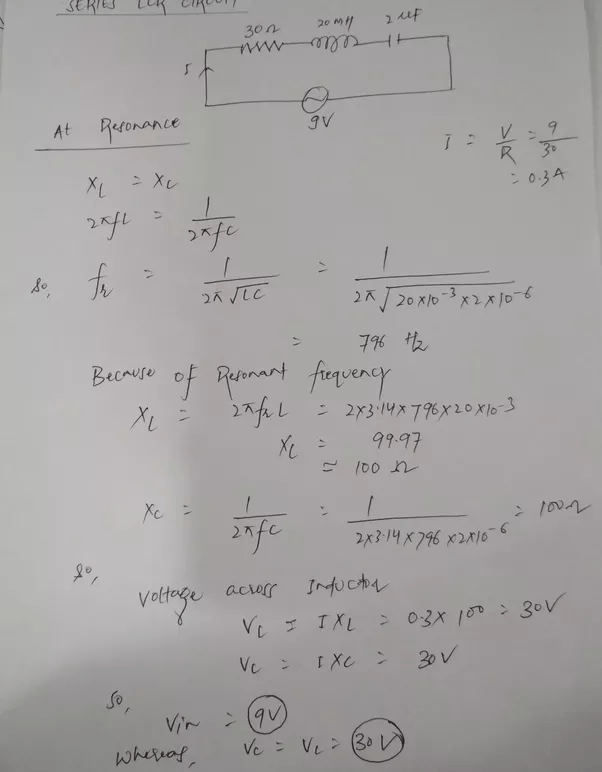 SERIES LCR CIRCUIT
30Ω 20MH 2 μF
S
9V
At Resonance
I = V/R = 9/30
= 0.3A
XL = XC
2πfL = 1/2πfC
So, fr = 1/2π√LC = 1/2π√20×10-3×2×10-6
= 796 Hz
Because of Resonant frequency
XL = 2πfrL = 2×3.14×796×20×10-3
XL = 99.97
≈ 100 Ω
XC = 1/2πfC = 1/2×3.14×796×2×10-6 = 100Ω
So,
Voltage across Inductor
VL = IXL = 0.3×100 = 30V
VC = IXC = 30V
So,
Vin = 9V
Whereas, VC = VL = 30V